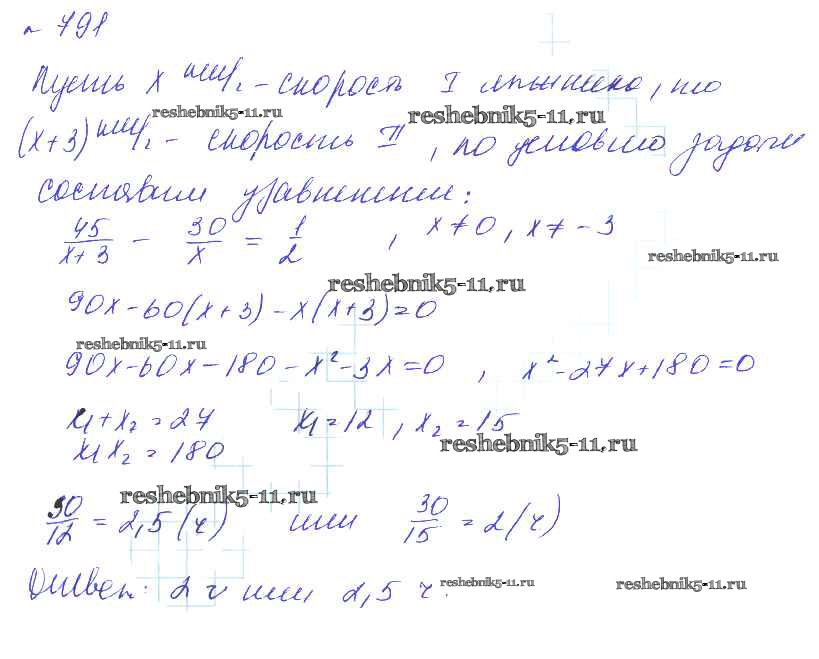 № 791
Пусть x км/ч – скорость I лыжника, то
reshebnik5-11.ru reshebnik5-11.ru
(x+3) км/ч – скорость II, по условию задачи
составим уравнение:
45/(x+3) – 30/x = 1/2 , x≠0, x≠–3
reshebnik5-11.ru
reshebnik5-11.ru
90x–60(x+3)–x(x+3)=0
reshebnik5-11.ru
90x–60x–180–x²–3x=0 , x²–27x+180=0
x₁+x₂=27 x₁=12, x₂=15
x₁x₂=180
reshebnik5-11.ru
reshebnik5-11.ru
30/12 = 2,5 (ч) или 30/15 = 2 (ч)
Ответ: 2 ч или 2,5 ч.
reshebnik5-11.ru reshebnik5-11.ru